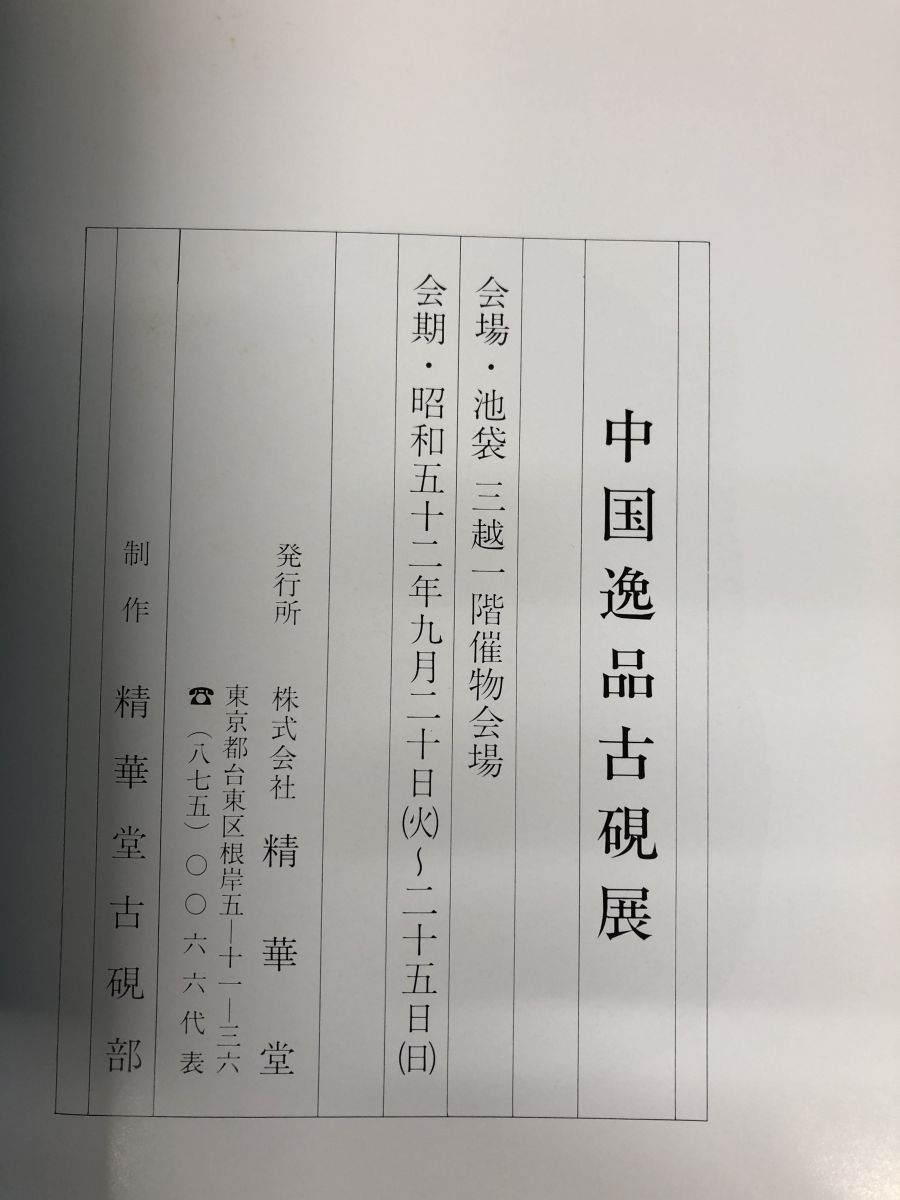 中国逸品古硯展
会場・池袋 三越一階催物会場
会期・昭和五十二年九月二十日㈫〜二十五日㈰
発行所 株式会社 精華堂
東京都台東区根岸五―十一―三六
☎(八七五)〇〇六六代表
制作 精華堂古硯部